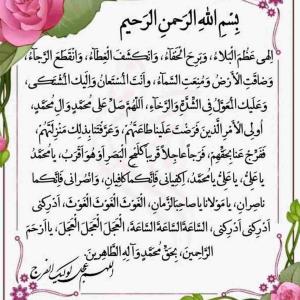 بِسْمِ اللهِ الرَحمنِ الرَحیمِ
اِلهى عَظُمَ الْبَلاَّءُ، وَبَرِحَ الْخَفَاَّءُ، وَانْكَشَفَ الْغِطَاَّءُ، وَانْقَطَعَ الرَّجَاَّءُ،
وَضاقَتِ الاْرْضُ، وَمُنِعَتِ السَّماَّءُ، وَاَنْتَ الْمُسْتَعانُ، وَاِلَیْكَ الْمُشْتَكى،
وَعَلَیْكَ الْمُعَوَّلُ فِى الشِّدَّةِ وَالرَّخاَّءِ، اَللّهُمَّ صَلِّ عَلى مُحَمَّدٍ وَ الِ مُحَمَّدٍ،
اُولِى الاْمْرِ الَّذینَ فَرَضْتَ عَلَیْنا طاعَتَهُمْ، وَعَرَّفْتَنا بِذلِكَ مَنْزِلَتَهُمْ،
فَفَرِّجْ عَنا بِحَقِّهِمْ، فَرَجاً عاجِلاً قَریباً كَلَمْحِ الْبَصَرِ اَوْ هُوَ اَقْرَبُ، یا مُحَمَّدُ
یا عَلِىُّ، یا عَلِىُّ یا مُحَمَّدُ، اِكْفِیانى فَاِنَّكُما كافِیانِ، وَانْصُرانى فَاِنَّكُما
ناصِرانِ، یا مَوْلانا یا صاحِبَ الزَّمانِ، الْغَوْثَ الْغَوْثَ الْغَوْثَ، اَدْرِكْنى
اَدْرِكْنى اَدْرِكْنى، السّاعَةَ السّاعَةَ السّاعَةَ، الْعَجَلَ الْعَجَلَ الْعَجَلَ، یا اَرْحَمَ
الرّاحِمینَ، بِحَقِّ مُحَمَّدٍ وَآلِهِ الطّاهِرینَ.
اللهم عجل لولیک الفرج